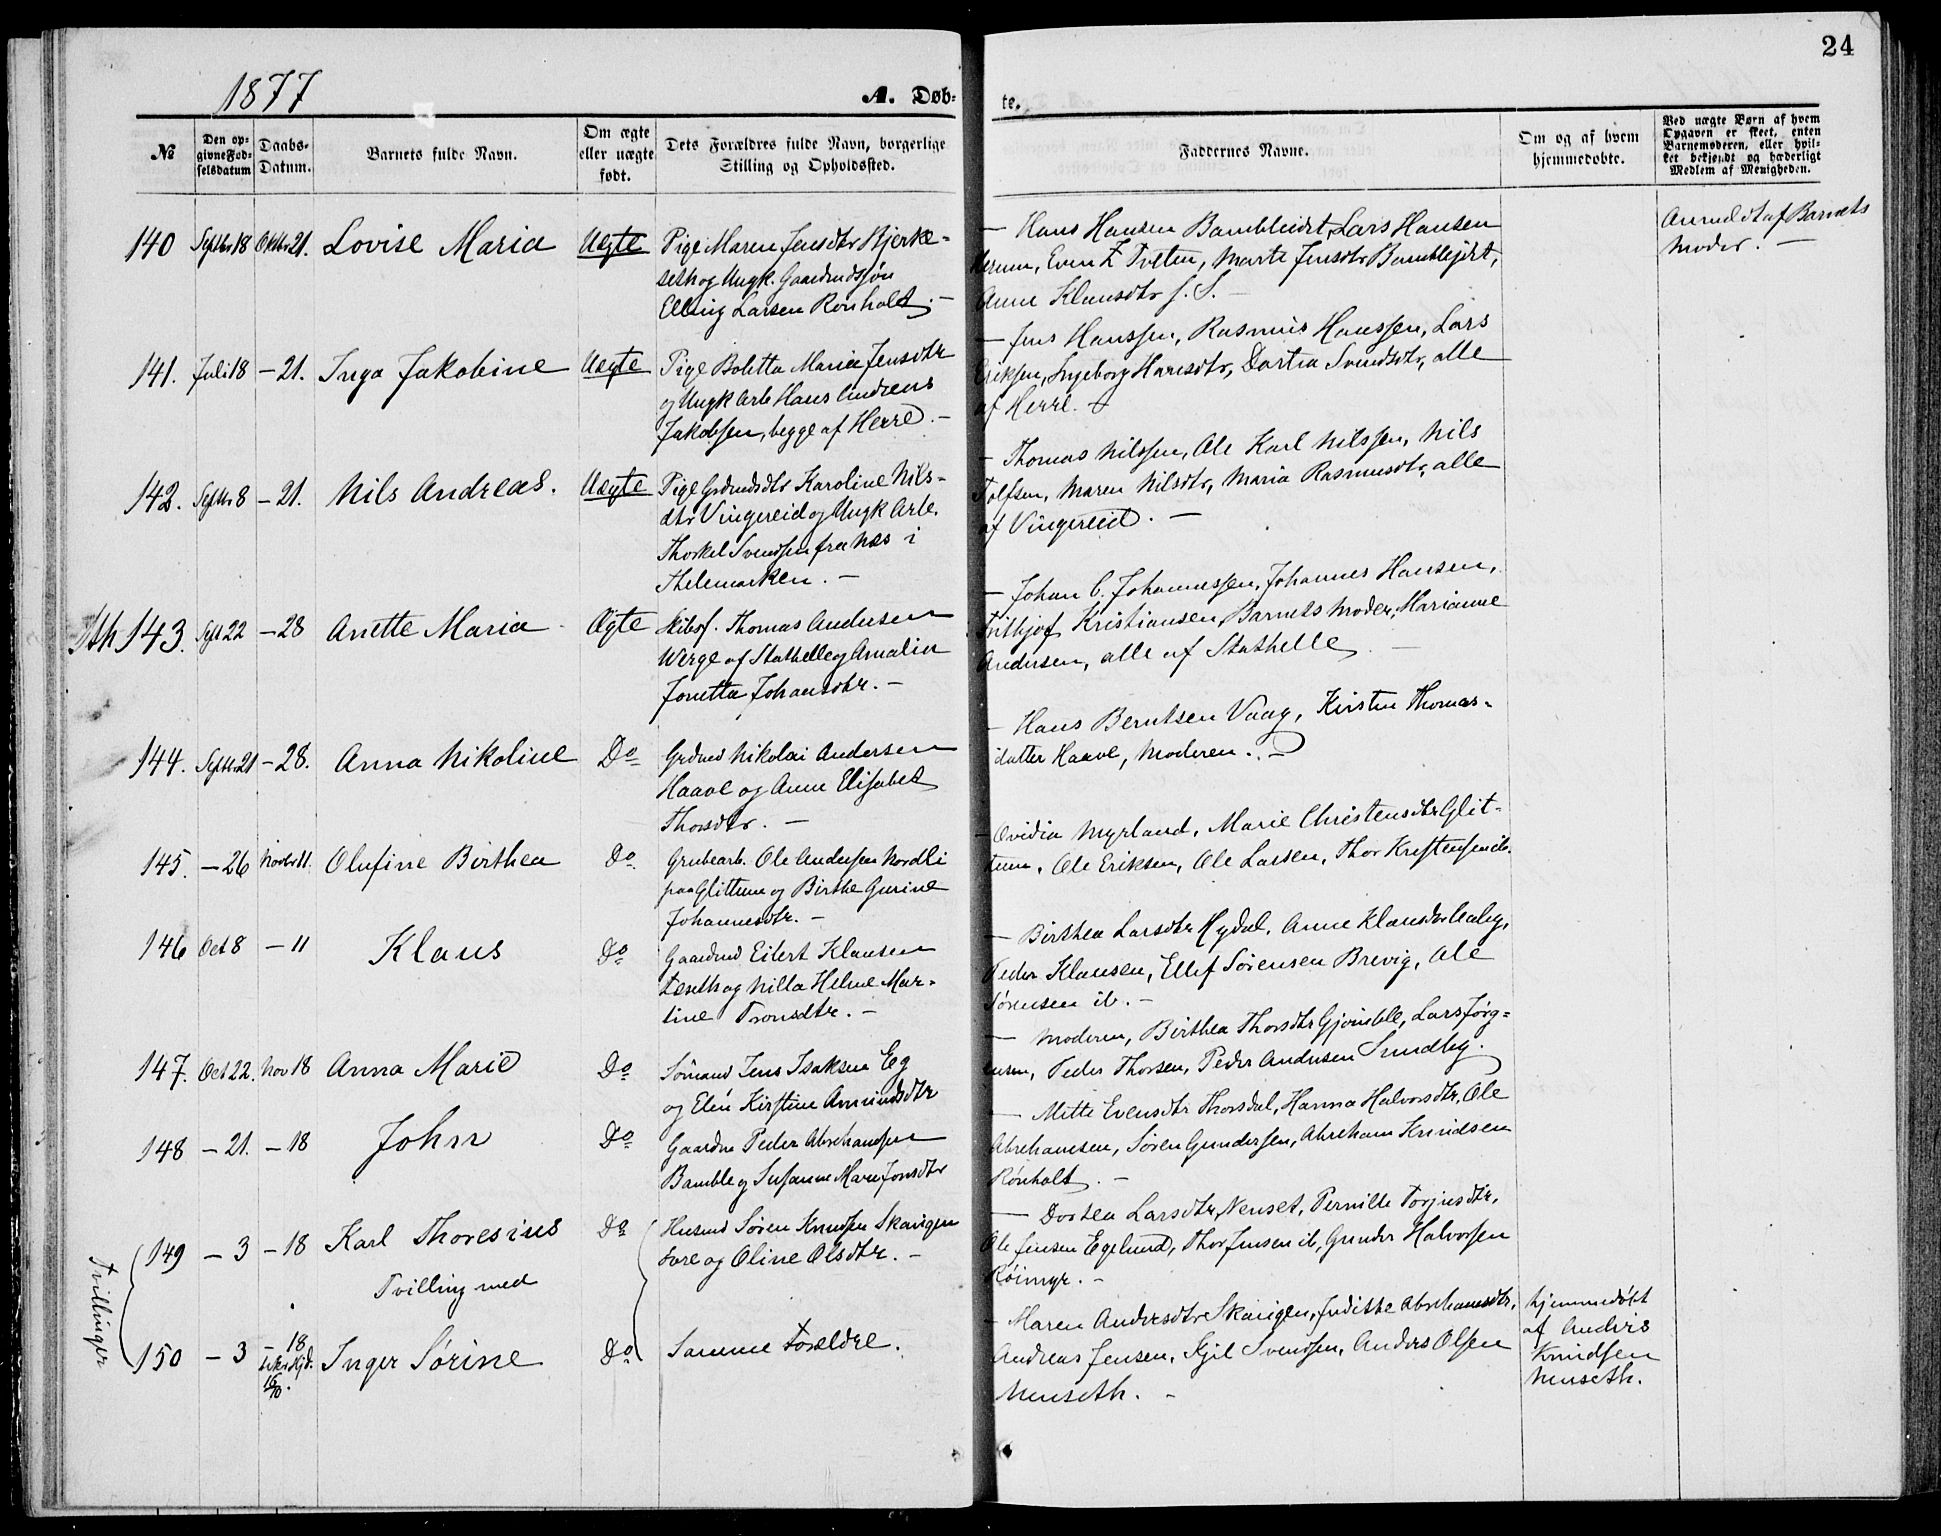 24
1877
A. Døb-
te.
№
Den op-
givne Fød-
selsdatum
Daabs-
Datum.
Barnets fulde Navn.
Om ægte
eller uægte
født.
Dets Forældres fulde Navn, borgerlige
Stilling og Opholdssted.
Faddernes Navne.
Om og af hvem
hjemmedøbte.
Ved uægte Børn af hvem
Opgaven er skeet, enten
Barnemoderen, eller hvil-
ket bekjendt og hæderligt
Medlem af Menigheden.
140 Septbr 18 Oktbr 21. Lovise Maria Uægte Pige Maren Jensdtr Bjerke-
seth og Ungk. Gaardmdssøn
Elling Larsen Rønholt. –
– Hans Hansen Bambleidet, Lars Hansen
Herum, Even Z Tveten, Marte Jensdtr Bamblejdet,
Anne Klausdtr s. S. –
Anmeldt af Barnets
Moder. –
141. Juli 18 – 21. Inga Jakobine Uægte Pige Boletta Maria Jensdtr
og Ungk Arb Hans Andreas
Jakobsen, begge af Herre. –
– Jens Hanssen, Rasmus Hanssen, Lars
Eriksen, Ingeborg Hansdtr, Dortea Svendsdtr, alle
af Herre.
142. Septbr 8 – 21. Nils Andreas. Uægte Pige Grdmdsdtr Karoline Nils-
dtr Vingereid og Ungk Arb.
Thorkel Svendsen fra Næs i
Thelemarken. –
– Thomas Nilssen, Ole Karl Nilssen, Nils
Tolfsen, Maren Nilsdtr, Maria Rasmusdtr, alle
af Vingereid. –
Sth 143. Sept 22 – 28 Anette Maria Ægte Skibsf. Thomas Andersen
Werge af Stathelle og Amalia
Jonetta Johansdtr. –
– Johan C. Johannessen, Johannes Hansen,
Fritkjof Kristiansen, Barnets Moder, Marianne
Andersen, alle af Stathelle –
144. Septbr 21 – 28. Anna Nikoline Do Grdmd Nikolai Andersen
Haave og Anne Elisabet
Thorsdtr. –
– Hans Berntsen Vaag, Kirsten Thomas-
datter Haave, Moderen. –
145. – 26 Novbr 11. Olufine Birthea Do Grubearb. Ole Andersen Nordli
paa Glittum og Birthe Gurine
Johannesdtr. –
– Ovidia Myrland, Marie Christensdtr Glit-
tum, Ole Eriksen, Ole Larsen, Thor Kristensen ib.
146 Oct 8 – 11 Klaus Do Gaardmd Eilert Klausen
Leseth og Nilla Helene Mar-
tine Tronsdtr. –
– Birthea Larsdtr Hydal, Anne Klausdtr
Peder Klausen, Ellef Sørensen Brevig, Ole
Sørensen ib. –
147. Oct 22. Nov 18 Anna Marie Do Sømand Jens Isaksen Eg
og Elen Kirstine Amundsdtr
– Moderen, Birthea Thorsdtr Gjømble, Lars Jørg-
ensen, Peder Thorsen, Peder Andersen Sundby.
148 – 21. – 18 John Do Gaardm Peder Abrehamsen
Bamble og Susanne Marie Jonsdtr
– Mette Evensdtr Thorsdal, Hanna Halvorsdtr, Ole
Abrehamsen, Søren Gundersen, Abreham Knudsen
Rønholt. –
Tvillinger
149 – 3 – 18 Karl Thoresius
Tvilling med
Do Husmd Søren Knudsen Skaugen
Tore og Oline Olsdtr. –
– Dorthea Larsdtr Nenset, Pernille Torjusdtr,
Ole Jensen Egelund, Thor Jensen ib, Gunder Halvorsen
Röimyr. –
150 – 3 – 18 Inger Sørine Do Samme Forældre.
16/10.
– Maren Andersdtr Skaugen, Judithe Abrehamsdtr,
Andreas Jensen, Kjil Svendsen, Anders Olsen
Nenseth. –
hjemmedøbt
af Anders
Knudsen
Nenseth.